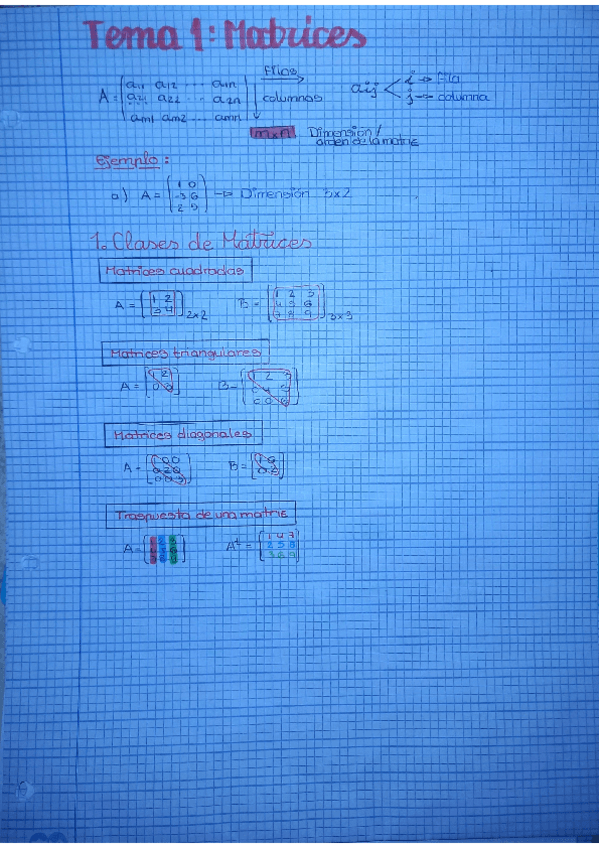 Tema 1: Matrices
Filas
A = (a11 a12 ... a1n
a21 a22 ... a2n
... 
am1 am2 ... amn) columnas
aij < i → fila
j → columna
m×n Dimensión /
orden de la matriz
Ejemplo:
a) A = (1 0
-3 6
2 5) → Dimensión 3x2
1. Clases de Matrices
Matrices cuadradas
A = [1 2
3 4] 2x2
B = [1 2 3
4 5 6
7 8 9] 3x3
Matrices triangulares
A = [1 2
0 3]
B = [1 2
0 4
0 0 6]
Matrices diagonales
A = [1 0 0
0 2 0
0 0 3]
B = [1 0
0 2]
Traspuesta de una matriz
A =
At = [1 4 7
2 5 8
3 6 9]